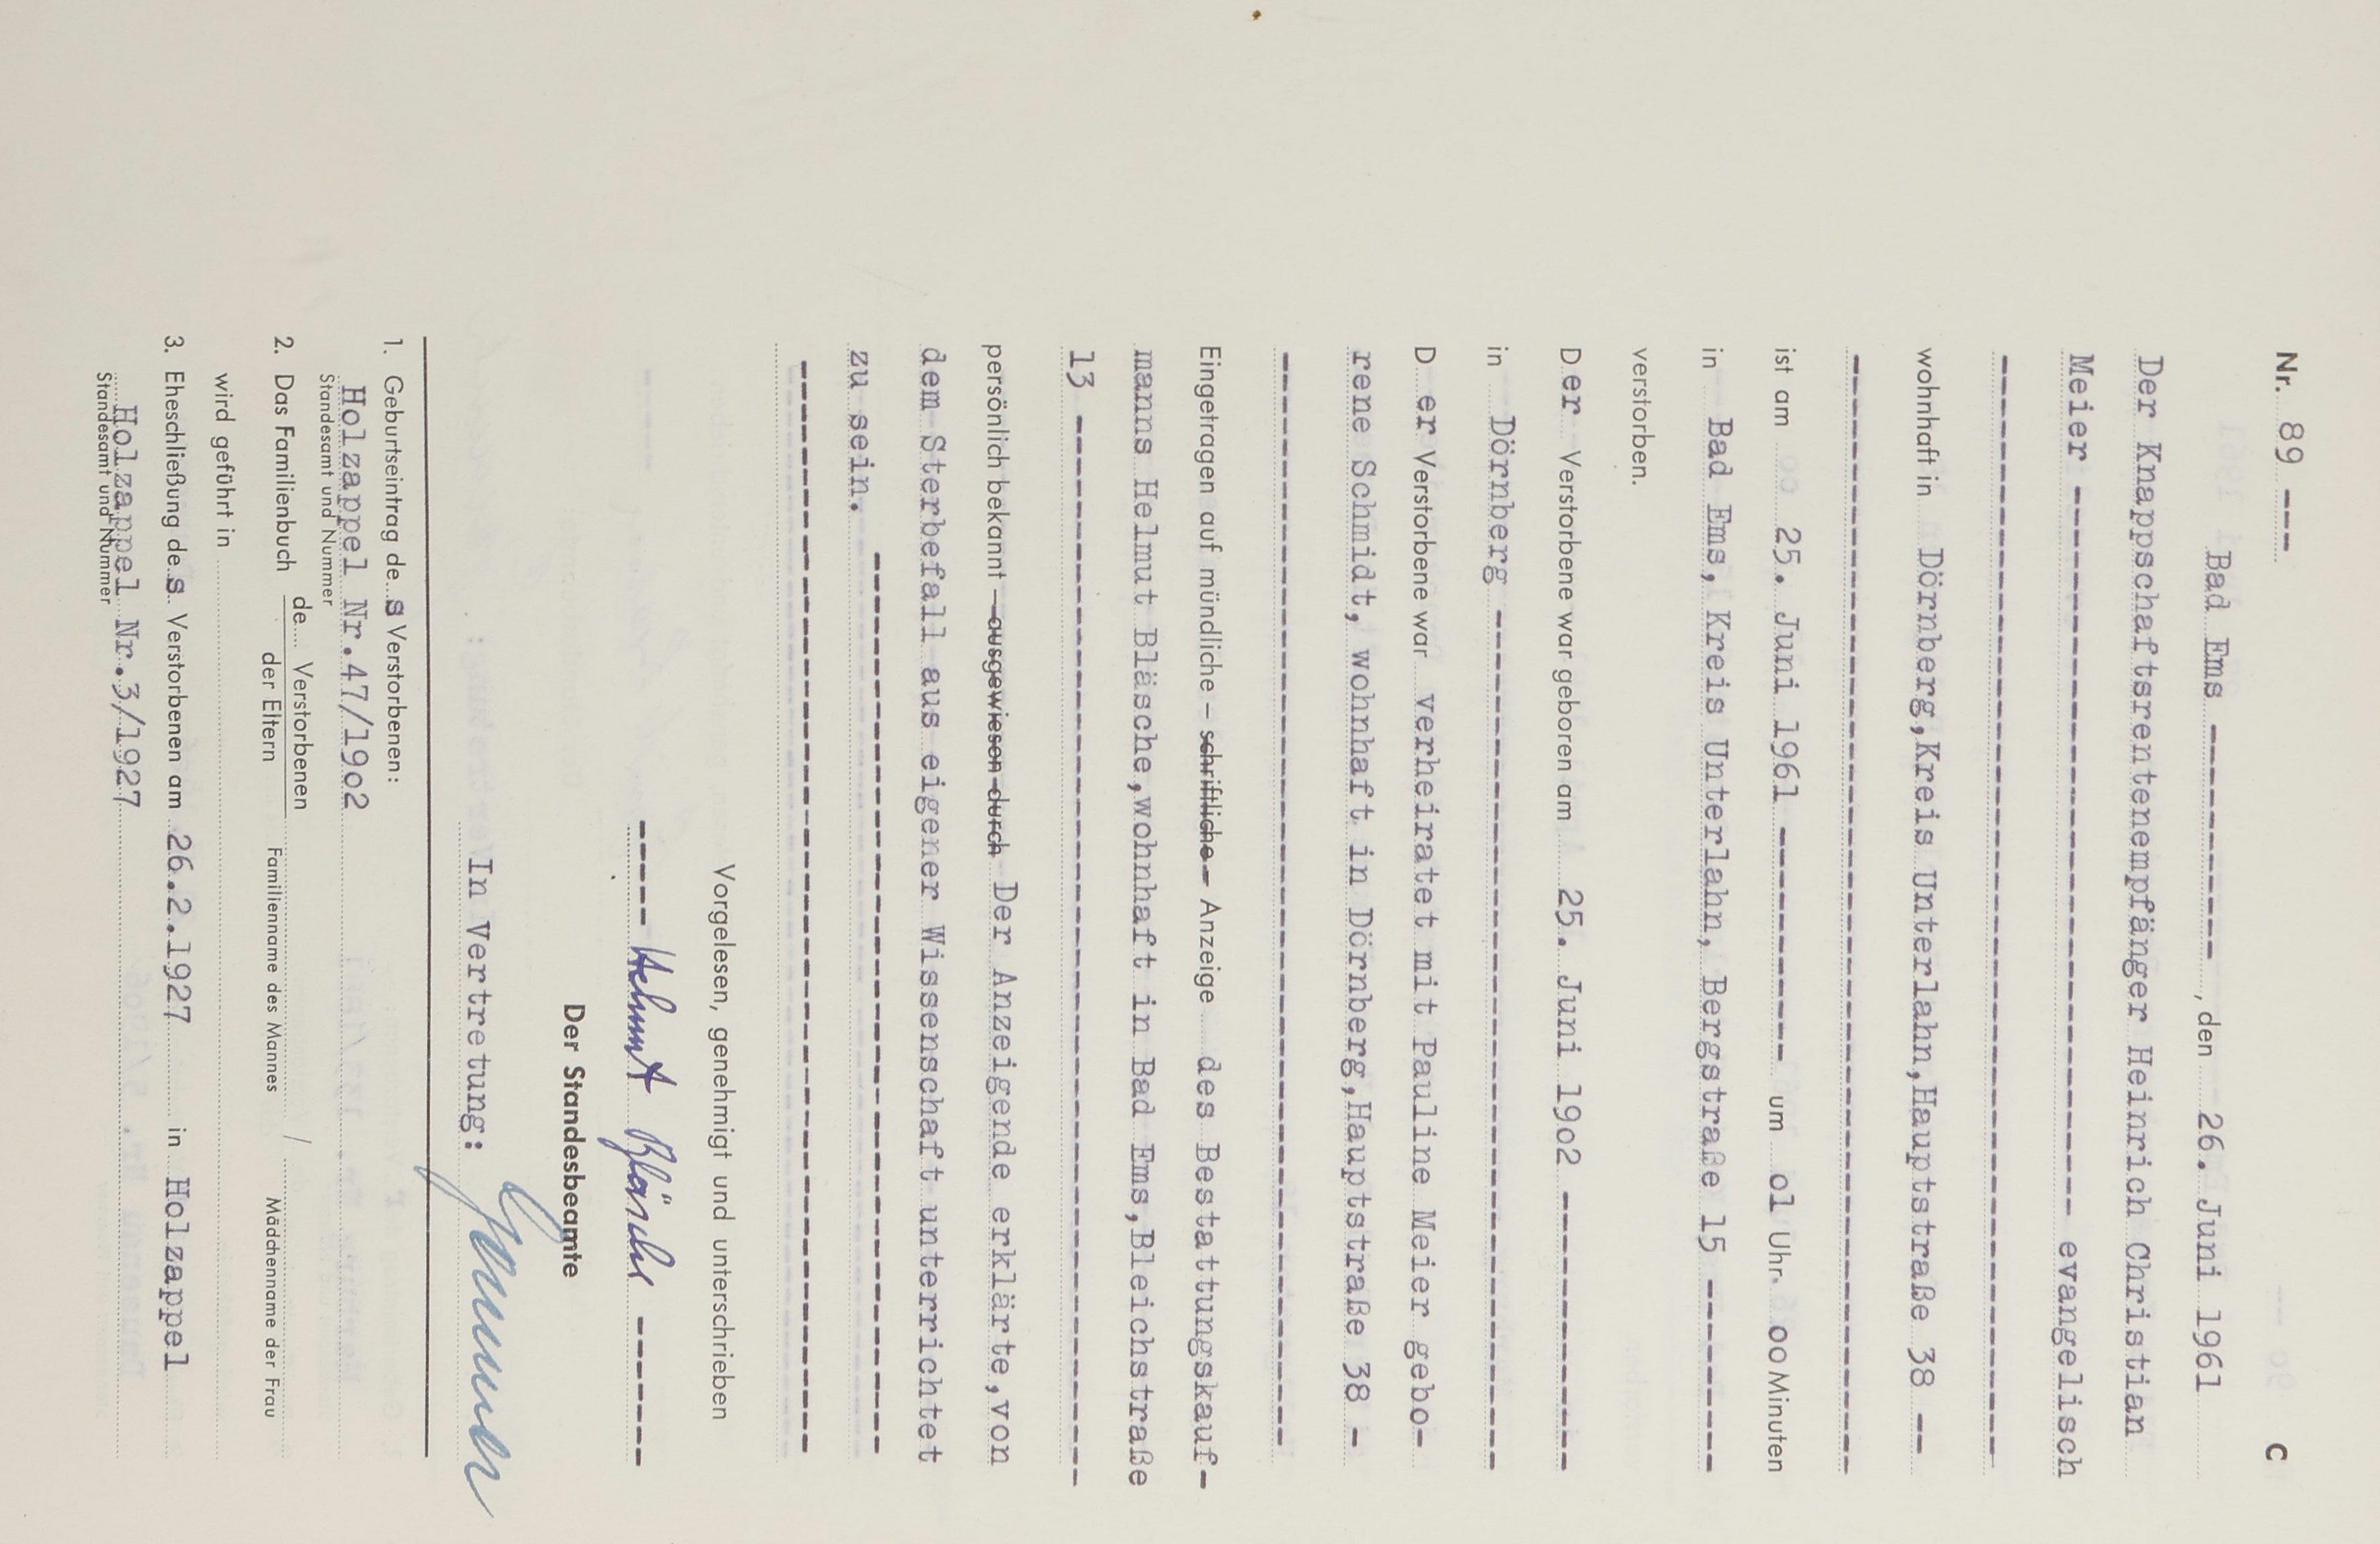 Nr. 89 --- C
Bad Ems ----------, den 26. Juni 1961
Der Knappschaftsrentenempfänger Heinrich Christian
Meier ------------------------------- evangelisch
--------------------------------------------------
wohnhaft in Dörnberg,Kreis Unterlahn,Hauptstraße 38 --
--------------------------------------------------
ist am 25. Juni 1961 ---------- um o1 Uhr. oo Minuten
in Bad Ems, Kreis Unterlahn, Bergstraße 15 --------
verstorben.
Der Verstorbene war geboren am 25. Juni 19o2 ------------
in Dörnberg ------------------------------------
Der Verstorbene war verheiratet mit Pauline Meier gebo-
rene Schmidt, wohnhaft in Dörnberg,Hauptstraße 38 -
--------------------------------------------------
Eingetragen auf mündliche – schriftliche – Anzeige des Bestattungskauf-
manns Helmut Bläsche,wohnhaft in Bad Ems,Bleichstraße
13 ----------------------------------------------
persönlich bekannt – ausgewiesen durch Der Anzeigende erklärte,von
dem Sterbefall aus eigener Wissenschaft unterrichtet
zu sein. ----------------------------------------
--------------------------------------------------
Vorgelesen, genehmigt und unterschrieben
----- Helmut Bläsche -------
Der Standesbeamte
In Vertretung:
1. Geburtseintrag des Verstorbenen:
Holzappel Nr.47/19o2
Standesamt und Nummer
2. Das Familienbuch de.... Verstorbenen
der Eltern
/
Familienname des Mannes Mädchenname der Frau
wird geführt in
3. Eheschließung des Verstorbenen am 26.2.1927 in Holzappel
Holzappel Nr.3/1927
Standesamt und Nummer